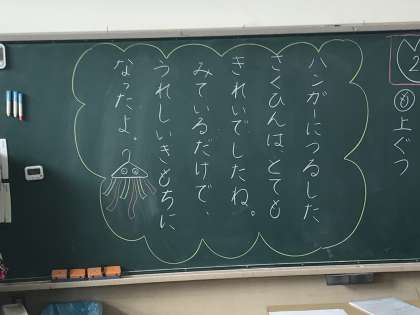 2
も上ぐつ
ハンガーにつるした
さくひんは、とても
きれいでしたね。
みているだけで、
うれしいきもちに
なったよ。